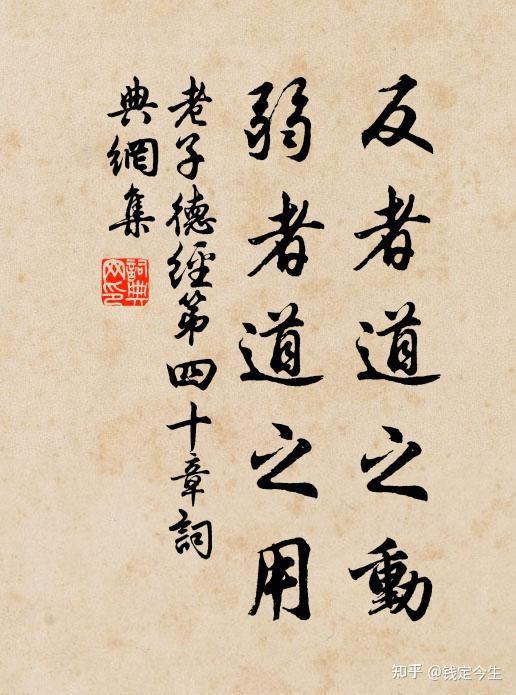 反者道之動
弱者道之用
老子德經第四十章詞
典網集
詞典
网印
知乎 @钱定今生